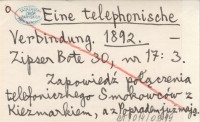 Eine telephonische
Verbindung. 1892. —
Zipser Bote 30, nr 17: 3.
Zapowiedź połączenia
telefonicznego Smokowców z
Kieżmarkiem, a z Popradem już mają.